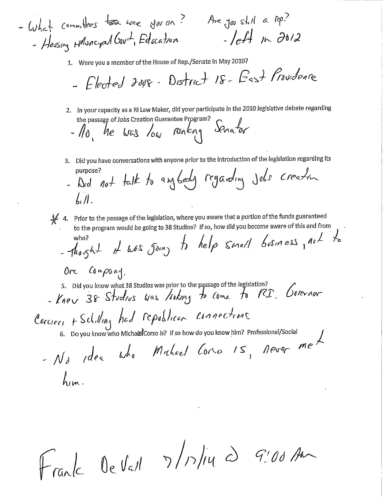 - What committees were you on? Are you still a rep?
- Housing + Municipal Govt, Education - left in 2012
1. Were you a member of the House of Rep./Senate in May 2010?
- Elected 2008 - District 18 - East Providence
2. In your capacity as a RI Law Maker, did your participate in the 2010 legislative debate regarding
the passage of Jobs Creation Guarantee Program?
- No, he was low ranking Senator
3. Did you have conversations with anyone prior to the introduction of the legislation regarding its
purpose?
- Did not talk to anybody regarding Jobs creation
bill.
* 4. Prior to the passage of the legislation, where you aware that a portion of the funds guaranteed
to the program would be going to 38 Studios? If so, how did you become aware of this and from
who?
- thought it was going to help small business, not to
One company.
5. Did you know what 38 Studios was prior to the passage of the legislation?
- Knew 38 Studios was looking to come to RI. Governor
Carcieri + Schilling had republican connections
6. Do you know who Michael Corso is? If so how do you know him? Professional/Social
- No idea who Michael Corso is, never met
him.
Frank DeVall 7/17/14 @ 9:00 AM